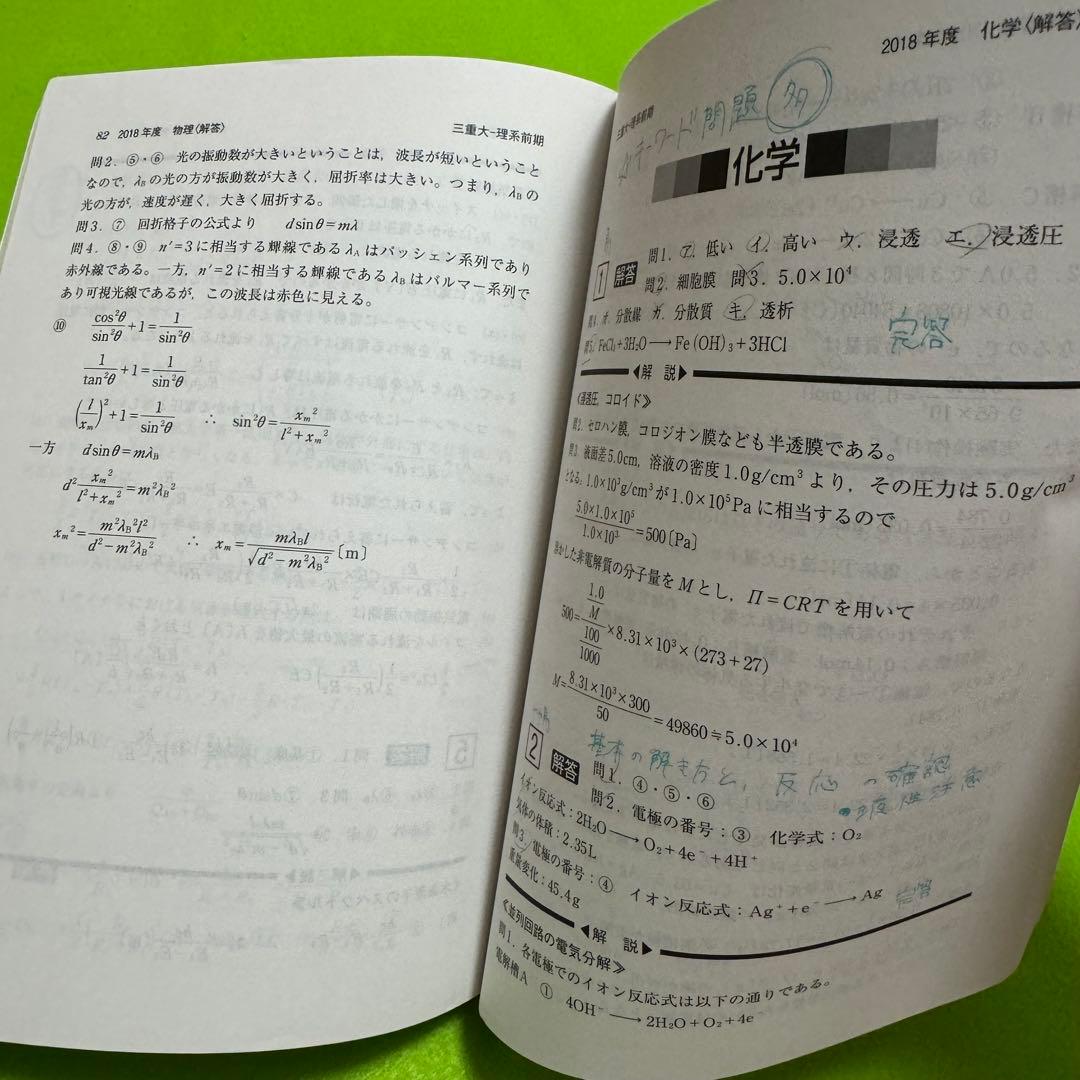 82 2018年度 物理〈解答〉 三重大-理系前期
問2. ⑤・⑥ 光の振動数が大きいということは，波長が短いということ
なので，λBの光の方が振動数が大きく，屈折率は大きい。つまり，λBの
光の方が，速度が遅く，大きく屈折する。
問3. ⑦ 回折格子の公式より dsinθ=mλ
問4. ⑧・⑨ n′=3に相当する輝線であるλAはパッシェン系列であり
赤外線である。一方，n′=2に相当する輝線であるλBはバルマー系列で
あり可視光線であるが，この波長は赤色に見える。
⑩ cos²θ/sin²θ+1=1/sin²θ
1/tan²θ+1=1/sin²θ
(l/xm)²+1=1/sin²θ ∴ sin²θ=xm²/(l²+xm²)
一方 dsinθ=mλB
d² xm²/(l²+xm²)=m²λB²
xm²=m²λB²l²/(d²−m²λB²) ∴ xm=mλBl/√(d²−m²λB²)〔m〕
2018年度 化学〈解答〉
三重大-理系前期
キーワード問題 多
化学
1 解答 問1. ア. 低い イ. 高い ウ. 浸透 エ. 浸透圧
問2. 細胞膜 問3. 5.0×10⁴
問4. オ. 分散線 カ. 分散質 キ. 透析
問5. FeCl₃+3H₂O→Fe(OH)₃+3HCl
完答
◀解 説▶
≪浸透圧，コロイド≫
問2. セロハン膜，コロジオン膜なども半透膜である。
問3. 液面差5.0cm，溶液の密度1.0g/cm³より，その圧力は5.0g/cm³
となる。1.0×10³g/cm³が1.0×10⁵Paに相当するので
5.0×1.0×10⁵/1.0×10³=500〔Pa〕
溶かした非電解質の分子量をMとし，Π=CRTを用いて
500=(1.0/M)/(100/1000)×8.31×10³×(273+27)
M=8.31×10³×300/50=49860≒5.0×10⁴
基本の解き方と，反応の確認
2 解答 問1. ④・⑤・⑥
問2. 電極の番号：③ 化学式：O₂
イオン反応式：2H₂O→O₂+4e⁻+4H⁺
気体の体積：2.35L
問3. 電極の番号：④ イオン反応式：Ag⁺+e⁻→Ag 完答
重量変化：45.4g
◀解 説▶
≪並列回路の電気分解≫
問1. 各電極でのイオン反応式は以下の通りである。
電解槽A ① 4OH⁻→2H₂O+O₂+4e⁻